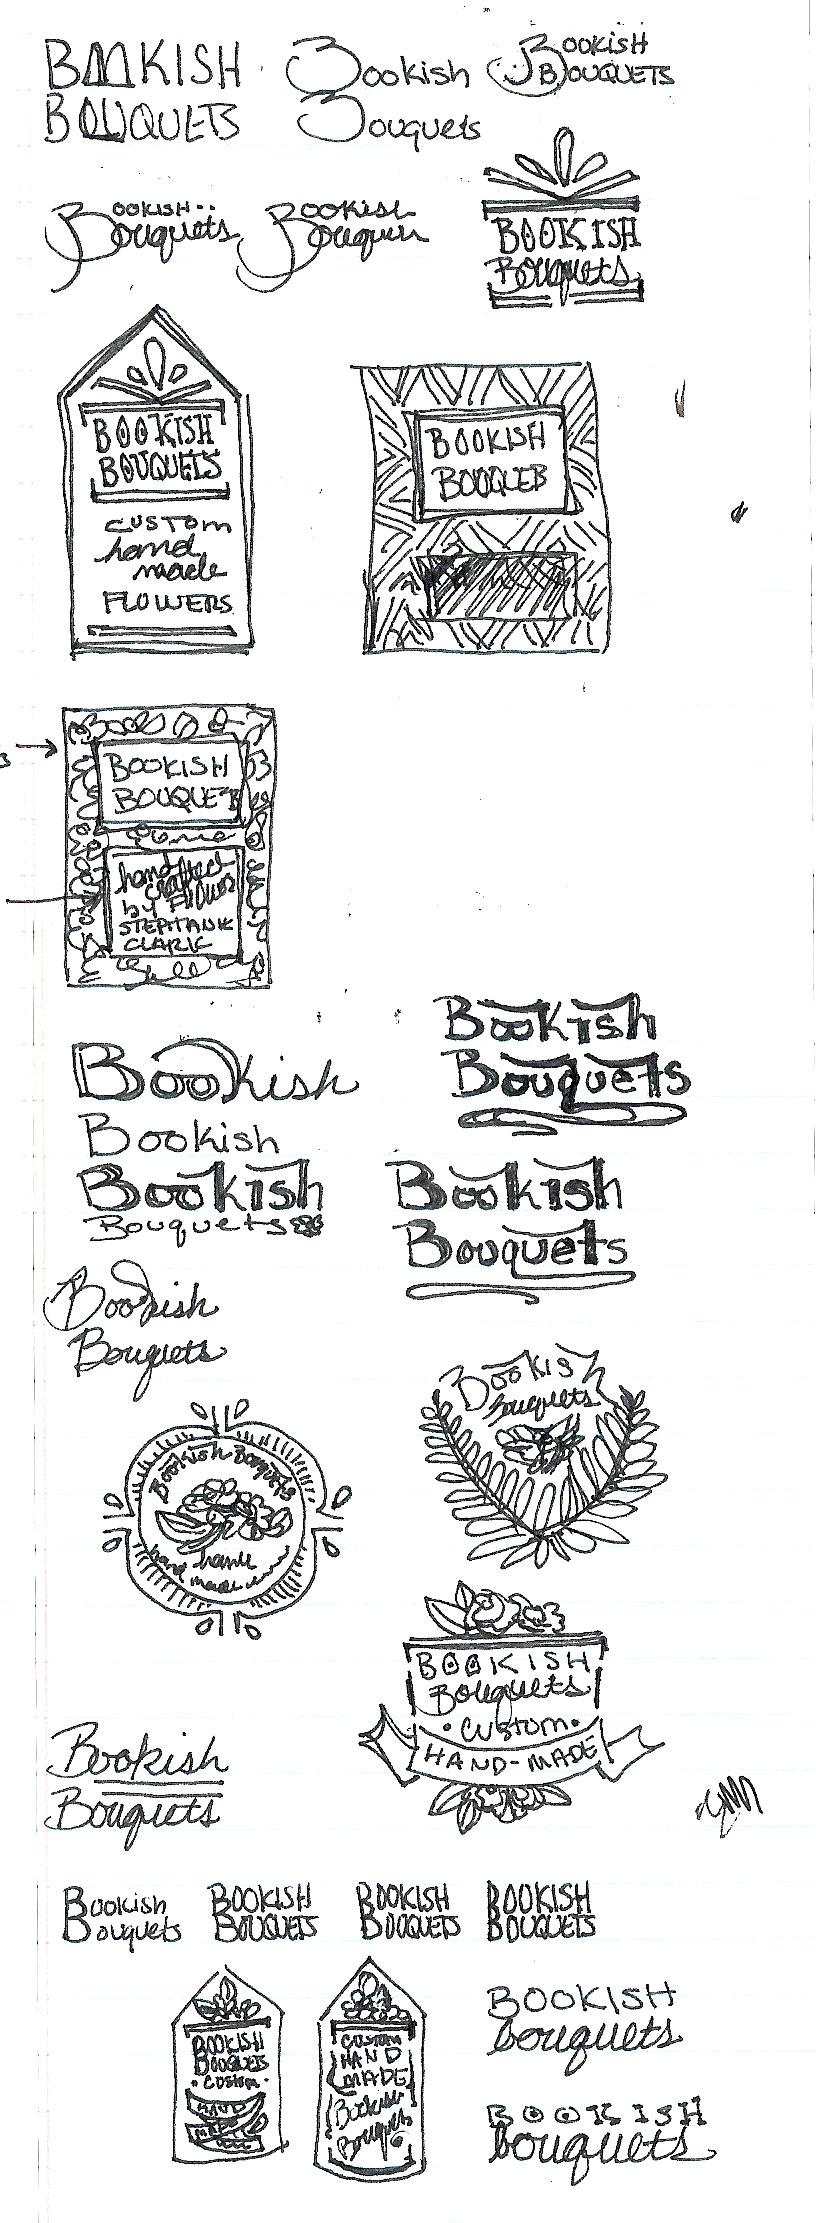 BOOKISH
BOUQUETS
Bookish
Bouquets
BOOKISH
BOUQUETS
BOOKISH
Bouquets
Bookish
BOOKISH
Bouquets
BOOKISH
BOUQUETS
CUSTOM
hand
made
FLOWERS
BOOKISH
BOUQUETS
Books
BOOKISH
BOUQUETS
hand
crafted
by
STEPHANIE
CLARK
Bookish
Bookish
Bookish
Bouquets
Bookish
Bouquets
Bookish
Bouquets
Bookish
Bouquets
Bookish Bouquets
hand made
Bookish
Bouquets
BOOKISH
Bouquets
• Custom •
HAND-MADE
Bookish
Bouquets
Bookish
Bouquets
BOOKISH
BOUQUETS
BOOKISH
BOUQUETS
BOOKISH
BOUQUETS
BOOKISH
BOUQUETS
• CUSTOM •
HAND
MADE
CUSTOM
HAND
MADE
Bookish
Bouquets
BOOKISH
bouquets
BOOKISH
bouquets